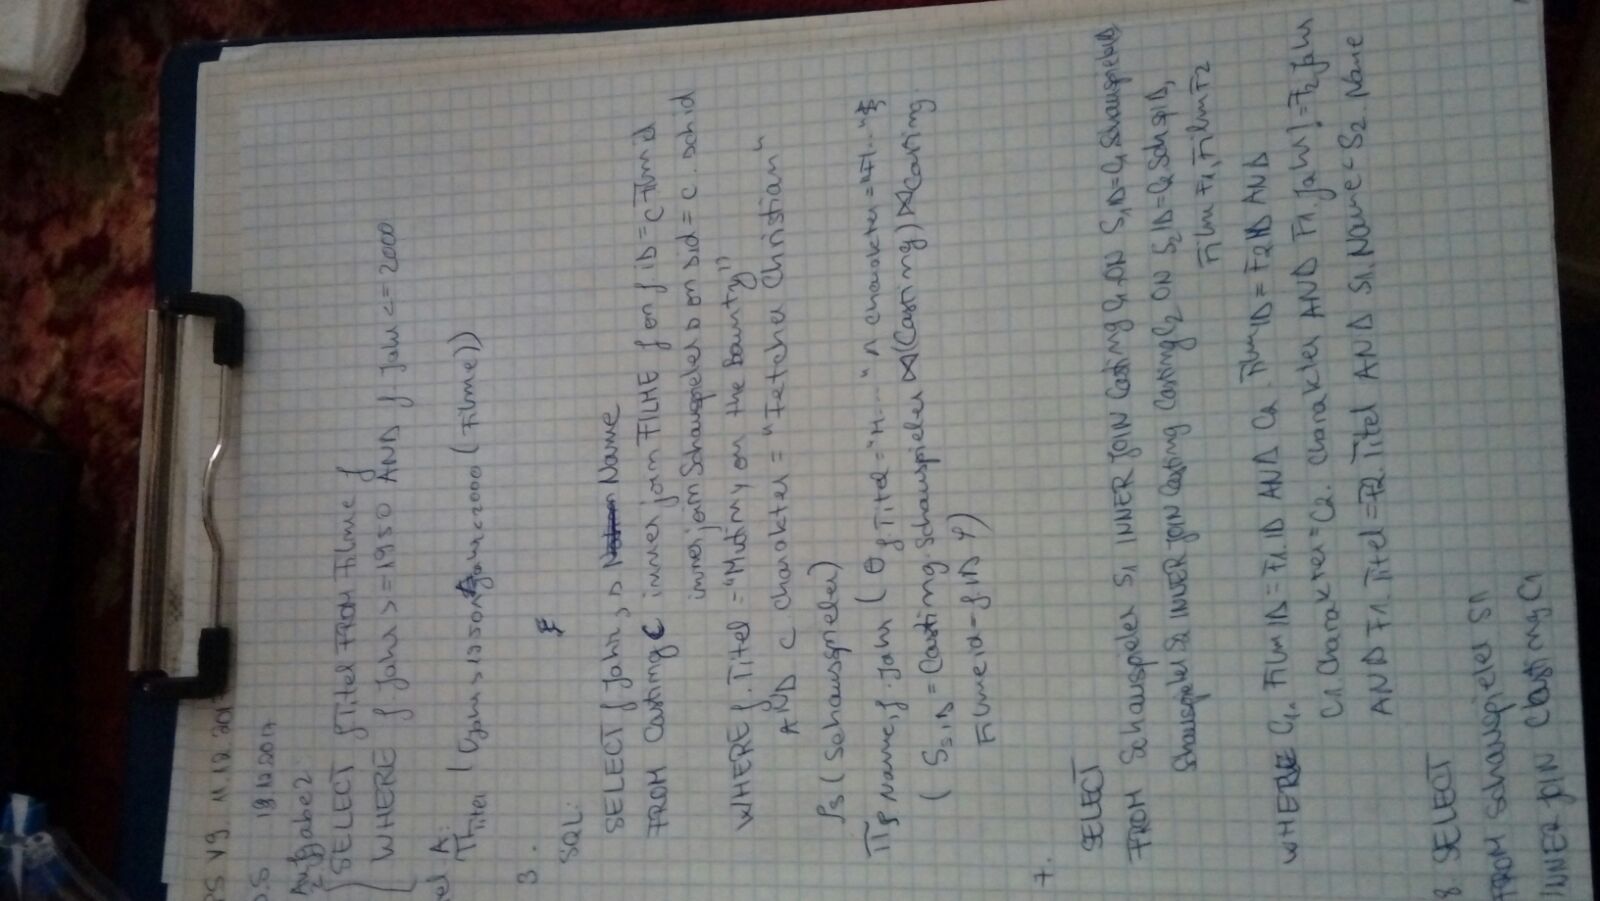 PS V9 11.12.201
DS 18.12.2017
Aufgabe 2
SELECT f.Titel FROM Filme f
WHERE f.Jahr >= 1950 AND f.Jahr <= 2000
rel A:
π Titel (σ Jahr > 1950 ∧ Jahr < 2000 (Filme))
3.
SQL:
SELECT f.Jahr, s.Name
FROM Casting C inner join FILME f on f.iD = c.Filmid
inner join Schauspieler s on s.id = c.schid
WHERE f.Titel = "Mutiny on the Bounty"
AND c charakter = "Fetcher Christian"
ρs (Schauspieler)
π s Name, f.Jahr (σ f.Titel = "M....." ∧ charakter = "Fl..."
(S s.ID = Casting.Schauspieler ⋈ (Casting) ⋈ Casting.
Filmeid = f.ID
7.
SELECT
FROM Schauspieler S1 INNER JOIN Casting C1 ON S1ID = C1 SchauspielerID
Schauspieler S2 INNER JOIN Casting Casting C2 ON S2ID = C2 SchSpID,
Film F1, Film F2
WHERE C1. FilmID = F1.ID AND C2. FilmID = F2ID AND
C1. Charakter = C2. Charakter AND F1. Jahr != F2 Jahr
AND F1. Titel = F2. Titel AND S1. Name < S2. Name
8 SELECT
FROM Schauspieler S1
INNER JOIN Casting C1